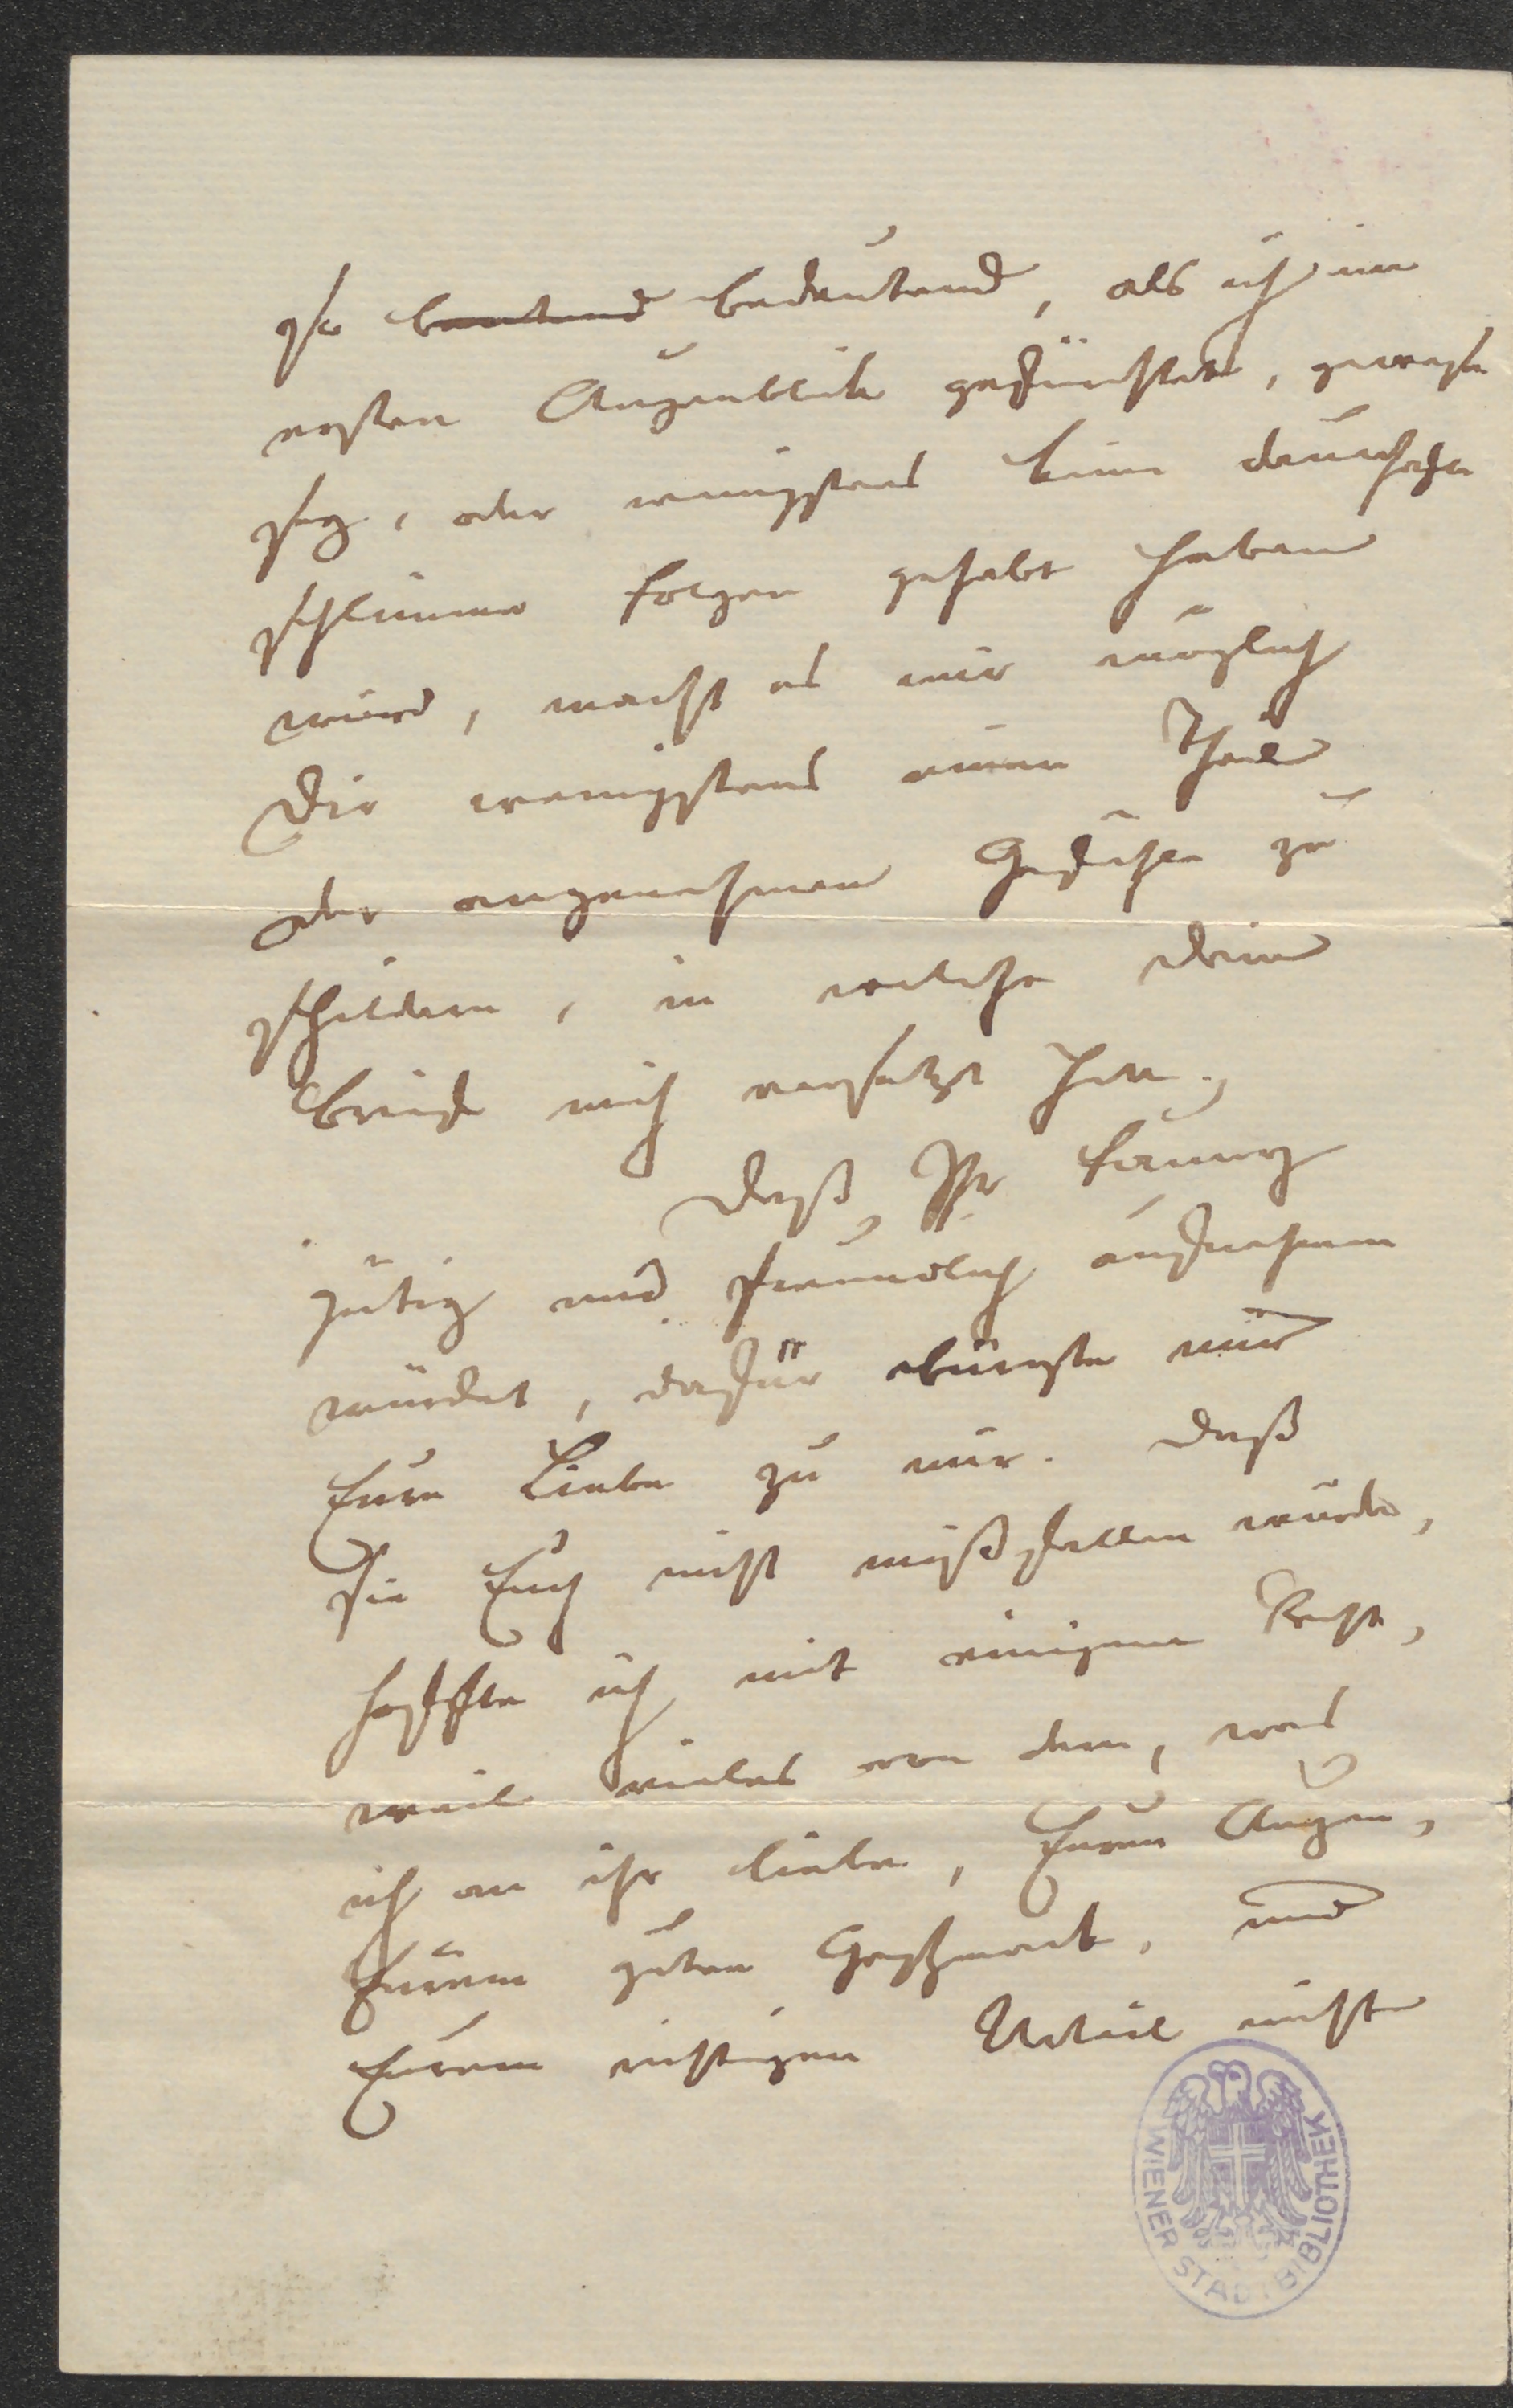 so beutend bedeutend, als ich im
ersten Augenblick gefürchtet, gewesen
sey, oder wenigstens keine dauerhafte
schlimme Folgen gehabt haben
wird, macht es mir möglich
Dir wenigstens einen Theil
der angenehmen Gefühle zu
schildern, in welche deine
Briefe mich versetzt hat.
Daß Ihr Fanny
gütig und freundlich aufnehmen
würdet, dafür bürgte mir
Eure Liebe zu mir. Daß
sie Euch nicht mißfallen würde,
hoffte ich mit einigem Recht,
weil vieles von dem, was
ich an ihr liebe, Euren Augen,
Eurem guten Geschmack, und
Eurem richtigen Urteil nicht
WIENER STADTBIBLIOTHEK